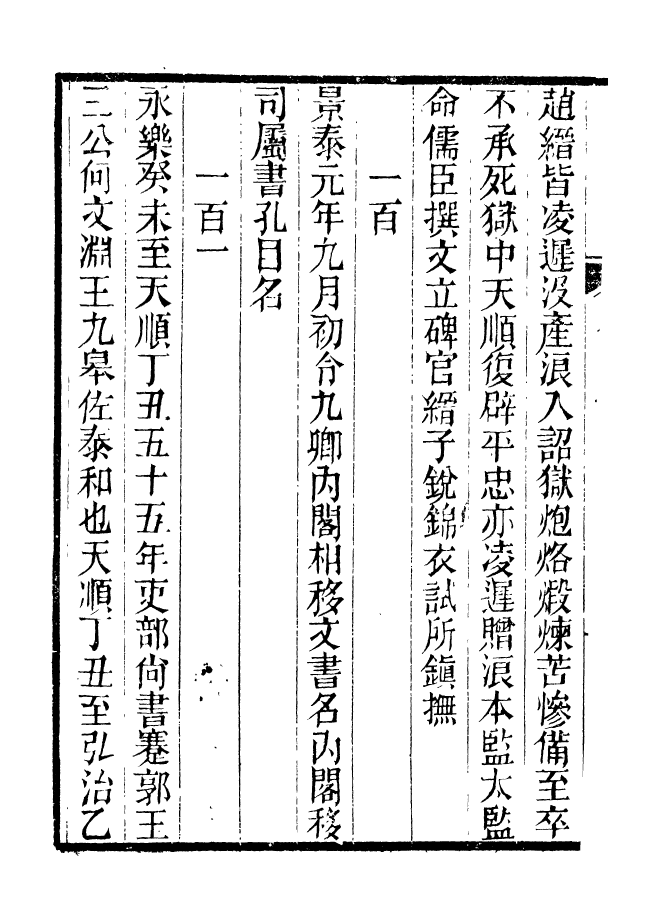 趙縉皆凌遲沒產浪入詔獄炮烙煅煉苦慘備至卒
不承死獄中天順復辟平忠亦凌遲贈浪本監太監
命儒臣撰文立碑官縉子銳錦衣試所鎮撫
一百
景泰元年九月初令九卿內閣相移文書名內閣移
司屬書孔目名
一百一
永樂癸未至天順丁丑五十五年吏部尚書蹇郭王
三公何文淵王九皋佐泰和也天順丁丑至弘治乙